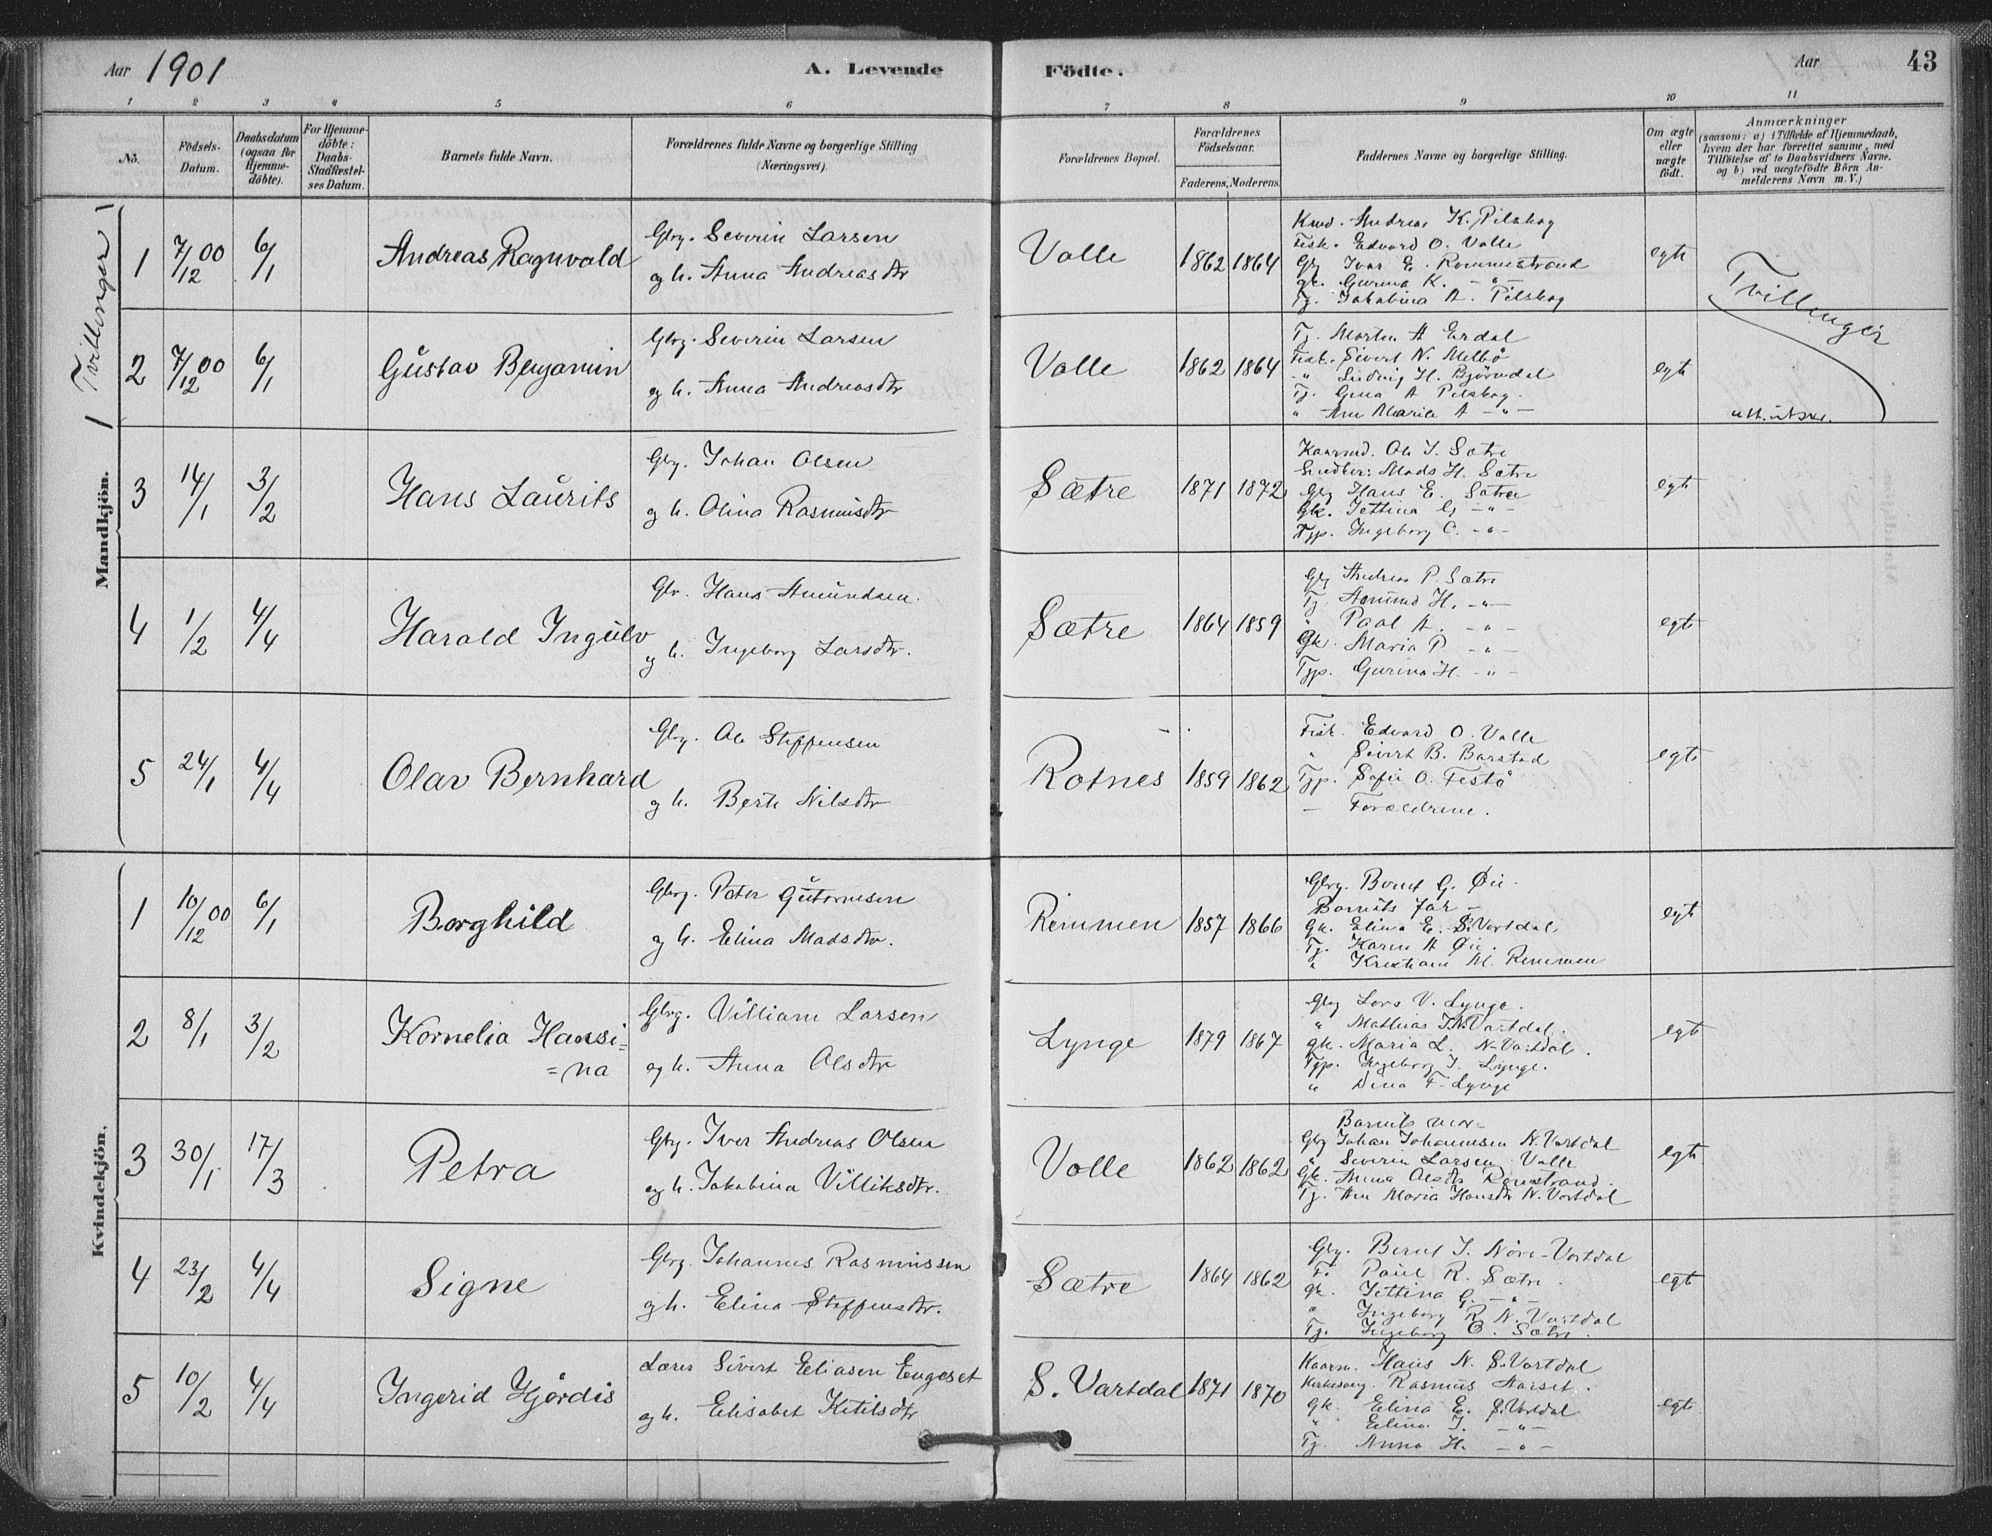 Aar 1901
A. Levende Födte.
Aar
43
1 2 3 4 5 6 7 8 9 10 11
No.
Födsels-
Datum.
Daabsdatum
(ogsaa for
Hjemme-
döbte).
For Hjemme-
döbte:
Daabs-
Stadfæstel-
ses Datum.
Barnets fulde Navn.
Forældrenes fulde Navne og borgerlige Stilling
(Næringsvei).
Forældrenes Bopæl.
Forældrenes
Födselsaar.
Faderens. Moderens.
Faddernes Navne og borgerlige Stilling.
Om ægte
eller
uægte
födt.
Anmærkninger
(saasom: a) i Tilfælde af Hjemmedaab,
hvem der har forrettet samme, med
Tilföielse af to Daabsvidners Navne,
og b) ved uægtefödte Börn An-
melderens Navn m. V.)
Mandkjön.
Tvillinger
1 7/12 00 6/1 Andreas Ragnvald
Gbrg. Severin Larsen
og h. Anna Andreasdtr
Valle 1862 1864
Kmd. Andreas K. Pilskog
Fisk. Edvard O. Valle
Gbr Ivar E. Rommestrand
gk. Gurina K. -"-
Tj. Jakobina A. Pilskog
egte
Tvillinger
2 7/12 00 6/1 Gustav Benjamin
Gbrg. Severin Larsen
og h. Anna Andreasdtr
Valle 1862 1864
Tj. Martin A Erdal
Fisk. Sivert N. Melbö
" Ludvig H. Björndal
Tj. Gina A Pilskog.
" Ane Marie A -"-
egte
3 14/1 3/2 Hans Laurits
Gbrg. Johan Olsen
og h. Olina Rasmusdtr
Sætre 1871 1872
Kaarmd. Ole J. Sætre
Mads H. Sætre
Gbrg Hans E. Sætre
Gk. Jettina G -"-
Typ. Ingeborg O. -"-
egte
4 1/2 4/4 Harald Ingulv
Gbr. Hans Amundsen.
og h. Ingeborg Larsdtr.
Sætre 1864 1859
Gbrg Andreas P. Sætre
Tj. Amund H. -"-
" Paal A. -"-
Gk. Maria P. -"-
Typ. Gurina H. -"-
egte
5 24/1 4/4 Olav Bernhard
Gbrg. Ole Steffensen
og h. Berte Nilsdtr
Rotnes 1859 1862
Fisk. Edvard O. Valle
" Sivert B. Barstad
Typ. Sofie O. Festö
– Forældrene.
egte
Kvindekjön.
1 10/12 00 6/1 Borghild
Gbrg. Peter Guttormsen
og h. Elina Madsdtr.
Remmen 1857 1866
Gbrg. Bernt G. Øie.
Barnets far –
Gk. Elina E. S. Vartdal.
Tj. Karen A Øie.
" Kristiane M. Remmen
egte
2 8/1 3/2 Kornelia Hansi=
=na
Gbrg. Villiam Larsen
og h. Anna Olsdtr
Lynge 1879 1867
Gbrg Lars V. Lynge.
" Mathias J. N. Vartdal.
gk. Maria L. N-Vartdal.
Typ. Ingeborg J. Lynge.
" Dina F. Lynge
egte
3 30/1 17/3 Petra
Gbrg. Iver Andreas Olsen
og h. Jakobina Villiksdtr.
Valle 1862 1862
Barnets mor
Gbrg Johan Johannesen N. Vartdal
" Severin Larsen Valle
Gk. Anna Olsdtr Romstrand.
Tj. Ane Maria Hansdtr N. Vartdal
egte
4 23/2 4/4 Signe
Gbrg. Johannes Rasmussen
og h. Elina Steffensdtr.
Sætre 1864 1862
Gbrg. Bernt J. Nöre-Vartdal
Paul R. Sætre.
gk. Jettina G. -"-
" Ingeborg R N. Vartdal
Tj. Ingeborg O. Sætre.
egte
5 10/2 4/4 Ingerid Hjördis
Lærer Sivert Eliasen Engeset
og h. Elisabet Ketilsdtr
S. Vartdal 1871 1870
Kaarm. Hans N. S. Vartdal
Kirkesang. Rasmus Aarset.
gk. Elina E. S. Vartdal
" Elina J. -"-
Tj. Anna H. -"-
egte